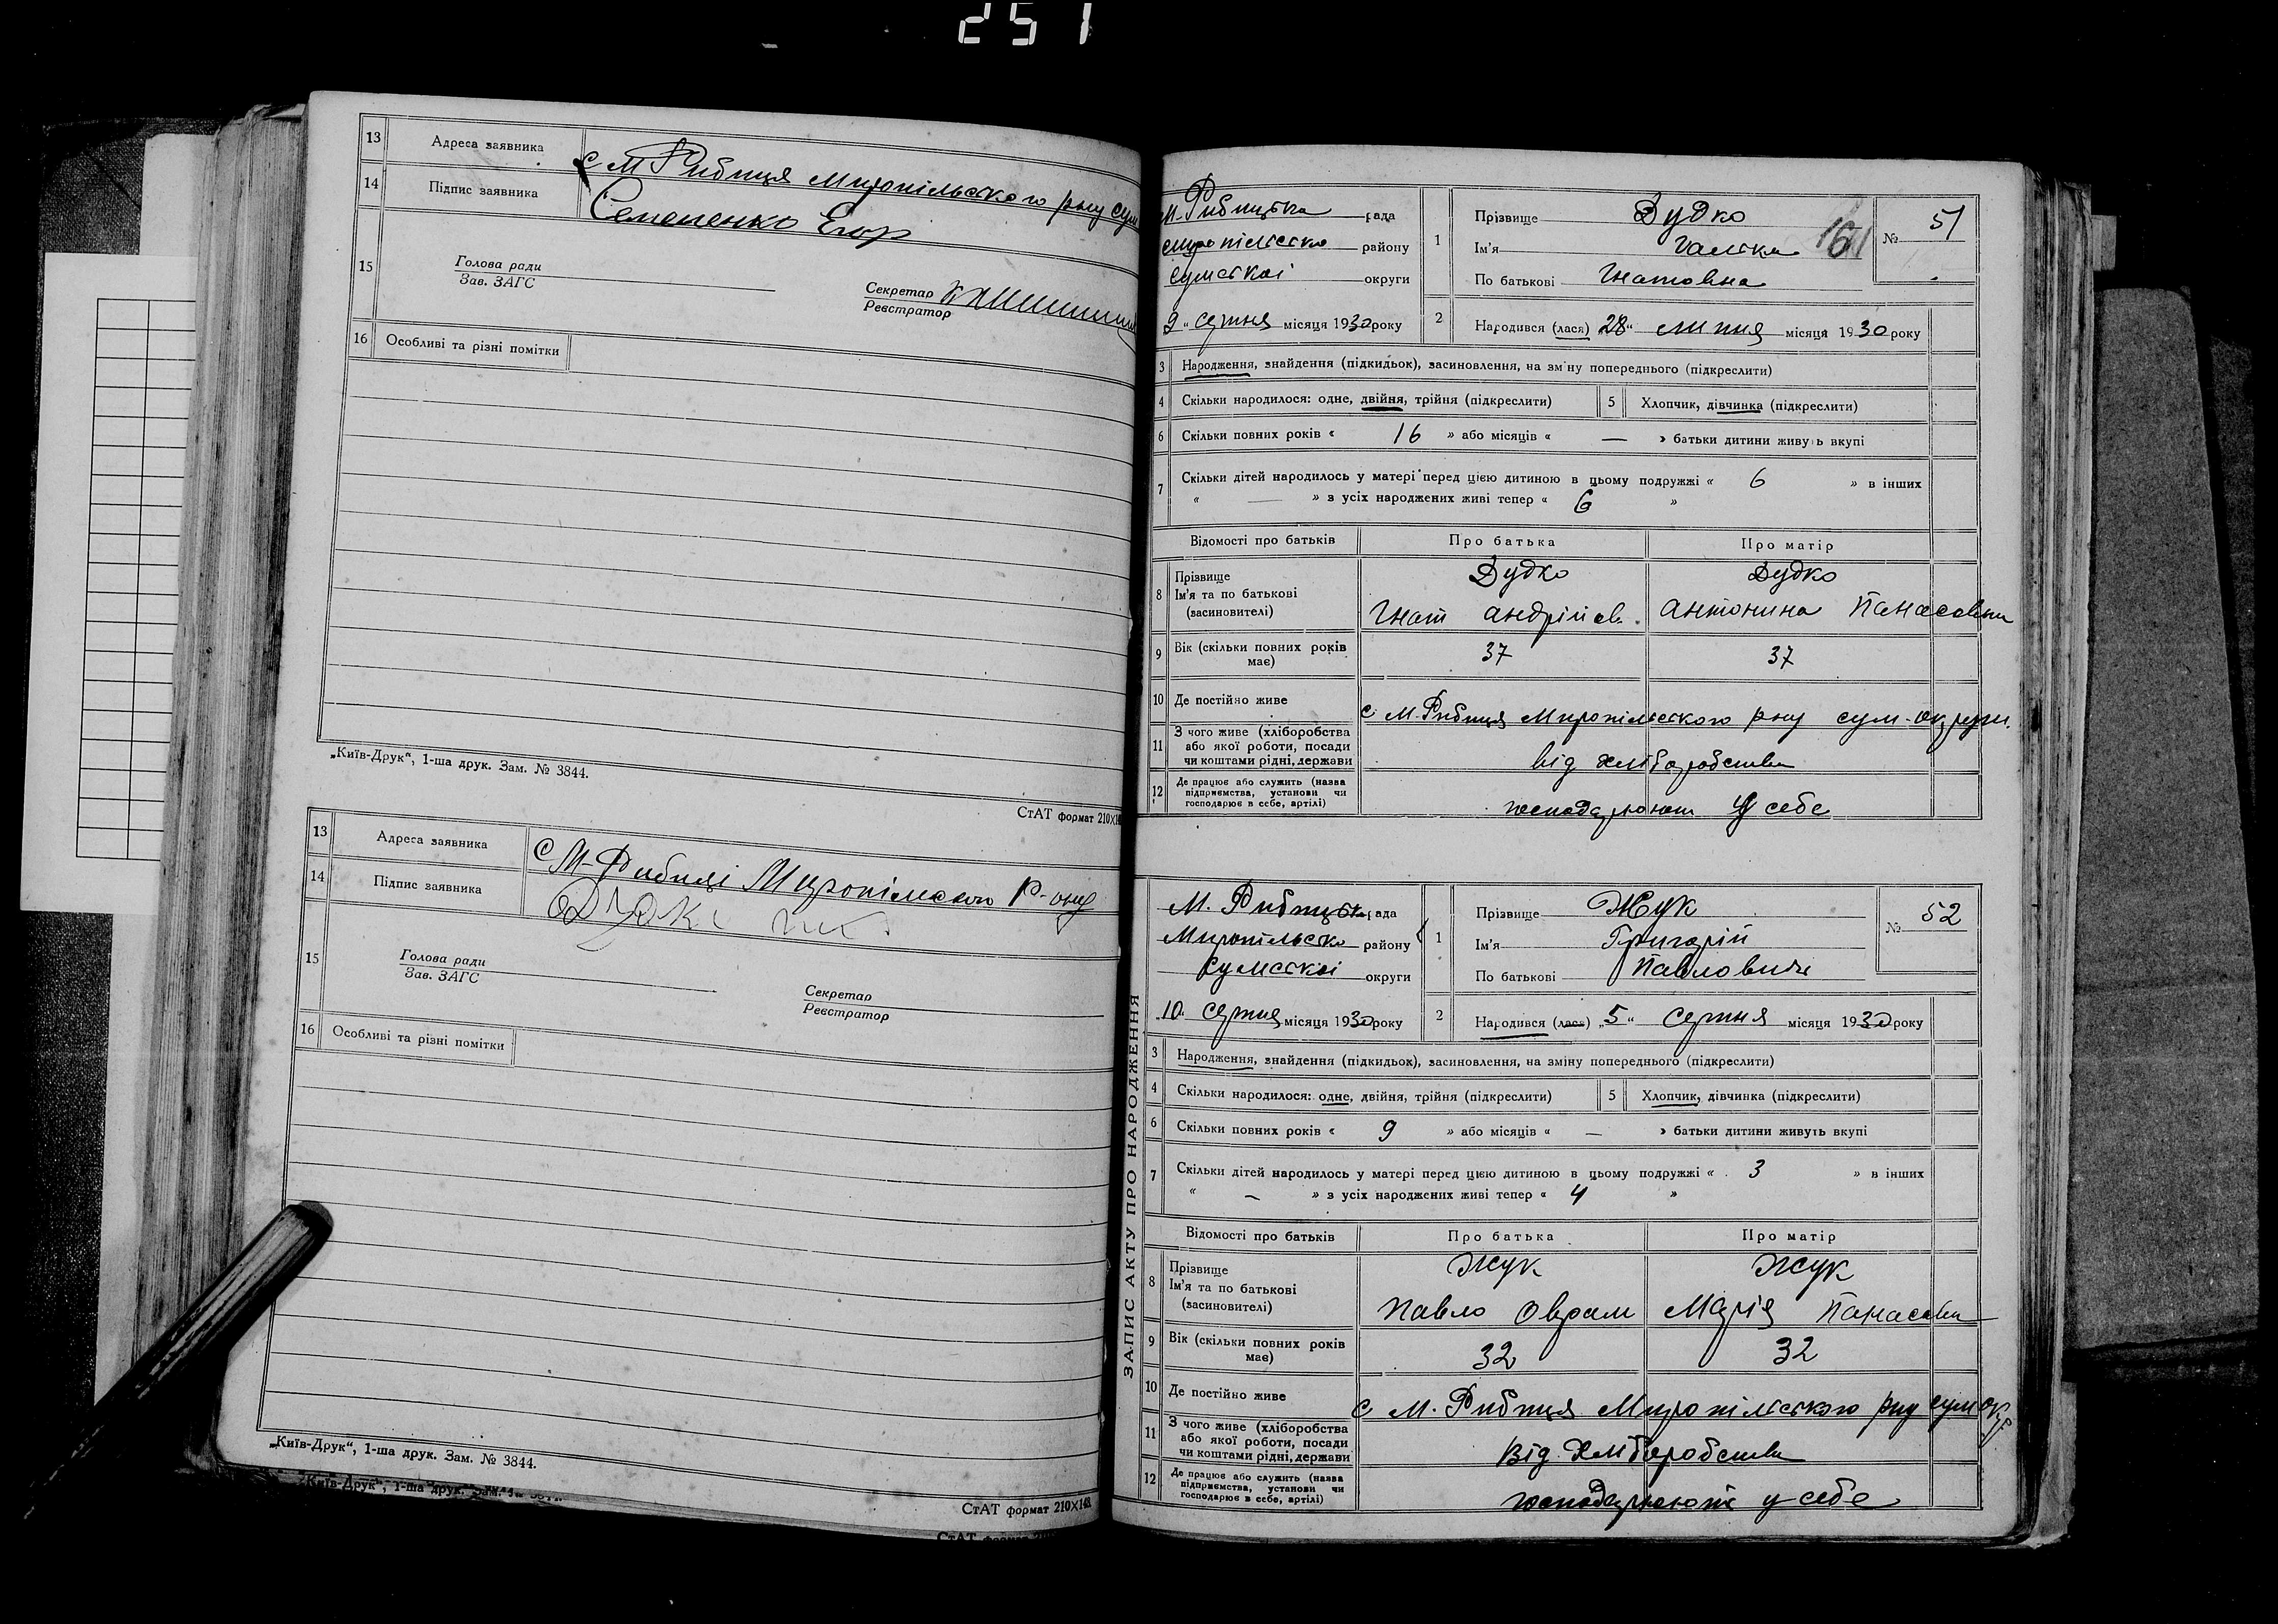 251
13 Адреса заявника с М Рибиця Миропільського рну сум
14 Підпис заявника Семененко Егор
15 Голова ради
Зав. ЗАГС
Секретар
Реєстратор
16 Особливі та різні помітки
„Київ-Друк“, 1-ша друк. Зам. № 3844.
СтАТ формат 210×148
13 Адреса заявника с М-Рибиці Миропільського р-ону
14 Підпис заявника
15 Голова ради
Зав. ЗАГС
Секретар
Реєстратор
16 Особливі та різні помітки
„Київ-Друк“, 1-ша друк. Зам. № 3844.
„Київ-Друк“, 1-ша друк. Зам.
СтАТ формат 210×148
СтАТ формат
М. Рибицька рада
Миропілсько району
Сумської округи
9 „ серпня місяця 1930 року
1 Прізвище Дудко
Ім'я Галька
По батькові Гнатовна
161
№ 51
2 Народився (лася) 28 „ липня місяця 1930 року
3 Народження, знайдення (підкидьок), засиновлення, на зміну попереднього (підкреслити)
4 Скільки народилося: одне, двійня, трійня (підкреслити) 5 Хлопчик, дівчинка (підкреслити)
6 Скільки повних років « 16 » або місяців « — » батьки дитини живуть вкупі
7 Скільки дітей народилось у матері перед цією дитиною в цьому подружжі « 6 » в інших
« — » з усіх народжених живі тепер « 6 »
Відомості про батьків Про батька Про матір
8 Прізвище Дудко Дудко
Ім'я та по батькові
(засиновителі) Гнат Андрійов. Антонина Панасовна
9 Вік (скільки повних років має) 37 37
10 Де постійно живе с М. Рибиця Миропільського рну сум-округи.
11 З чого живе (хліборобства
або якої роботи, посади
чи коштами рідні, держави від хліборобства
12 Де працює або служить (назва
підприємства, установи чи
господарює в себе, артілі) господарюют у себе
ЗАПИС АКТУ ПРО НАРОДЖЕННЯ
М. Рибицька рада
Миропільсько району
Сумської округи
„10 серпня місяця 1930 року
1 Прізвище Жук
Ім'я Григорій
По батькові Павлович
№ 52
2 Народився (лася) „5“ Серпня місяця 1930 року
3 Народження, знайдення (підкидьок), засиновлення, на зміну попереднього (підкреслити)
4 Скільки народилося: одне, двійня, трійня (підкреслити) 5 Хлопчик, дівчинка (підкреслити)
6 Скільки повних років « 9 » або місяців « — » батьки дитини живуть вкупі
7 Скільки дітей народилось у матері перед цією дитиною в цьому подружжі « 3 » в інших
« — » з усіх народжених живі тепер « 4 »
Відомості про батьків Про батька Про матір
8 Прізвище Жук Жук
Ім'я та по батькові
(засиновителі) Павло Оврам Марія Панасовн
9 Вік (скільки повних років має) 32 32
10 Де постійно живе с М. Рибиця Миропільського рну сум окр
11 З чого живе (хліборобства
або якої роботи, посади
чи коштами рідні, держави Від Хліборобства
12 Де працює або служить (назва
підприємства, установи чи
господарює в себе, артілі) господарюють у себе